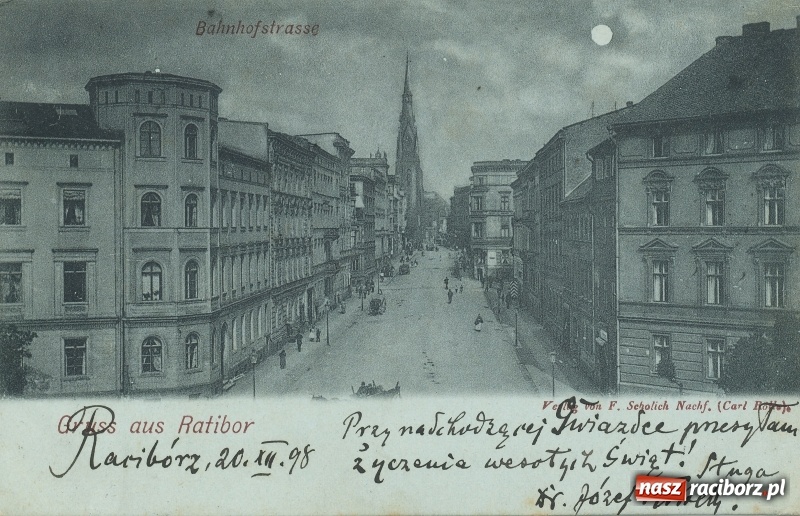 Bahnhofstrasse
Verlag von F. Scholich Nachf. (Carl
Gruss aus Ratibor
Racibórz, 20.XII.98
Przy nadchodzącej Gwiazdce przesyłam
życzenia wesołych Świąt!
Sługa
Dr. Józef
nasz raciborz.pl